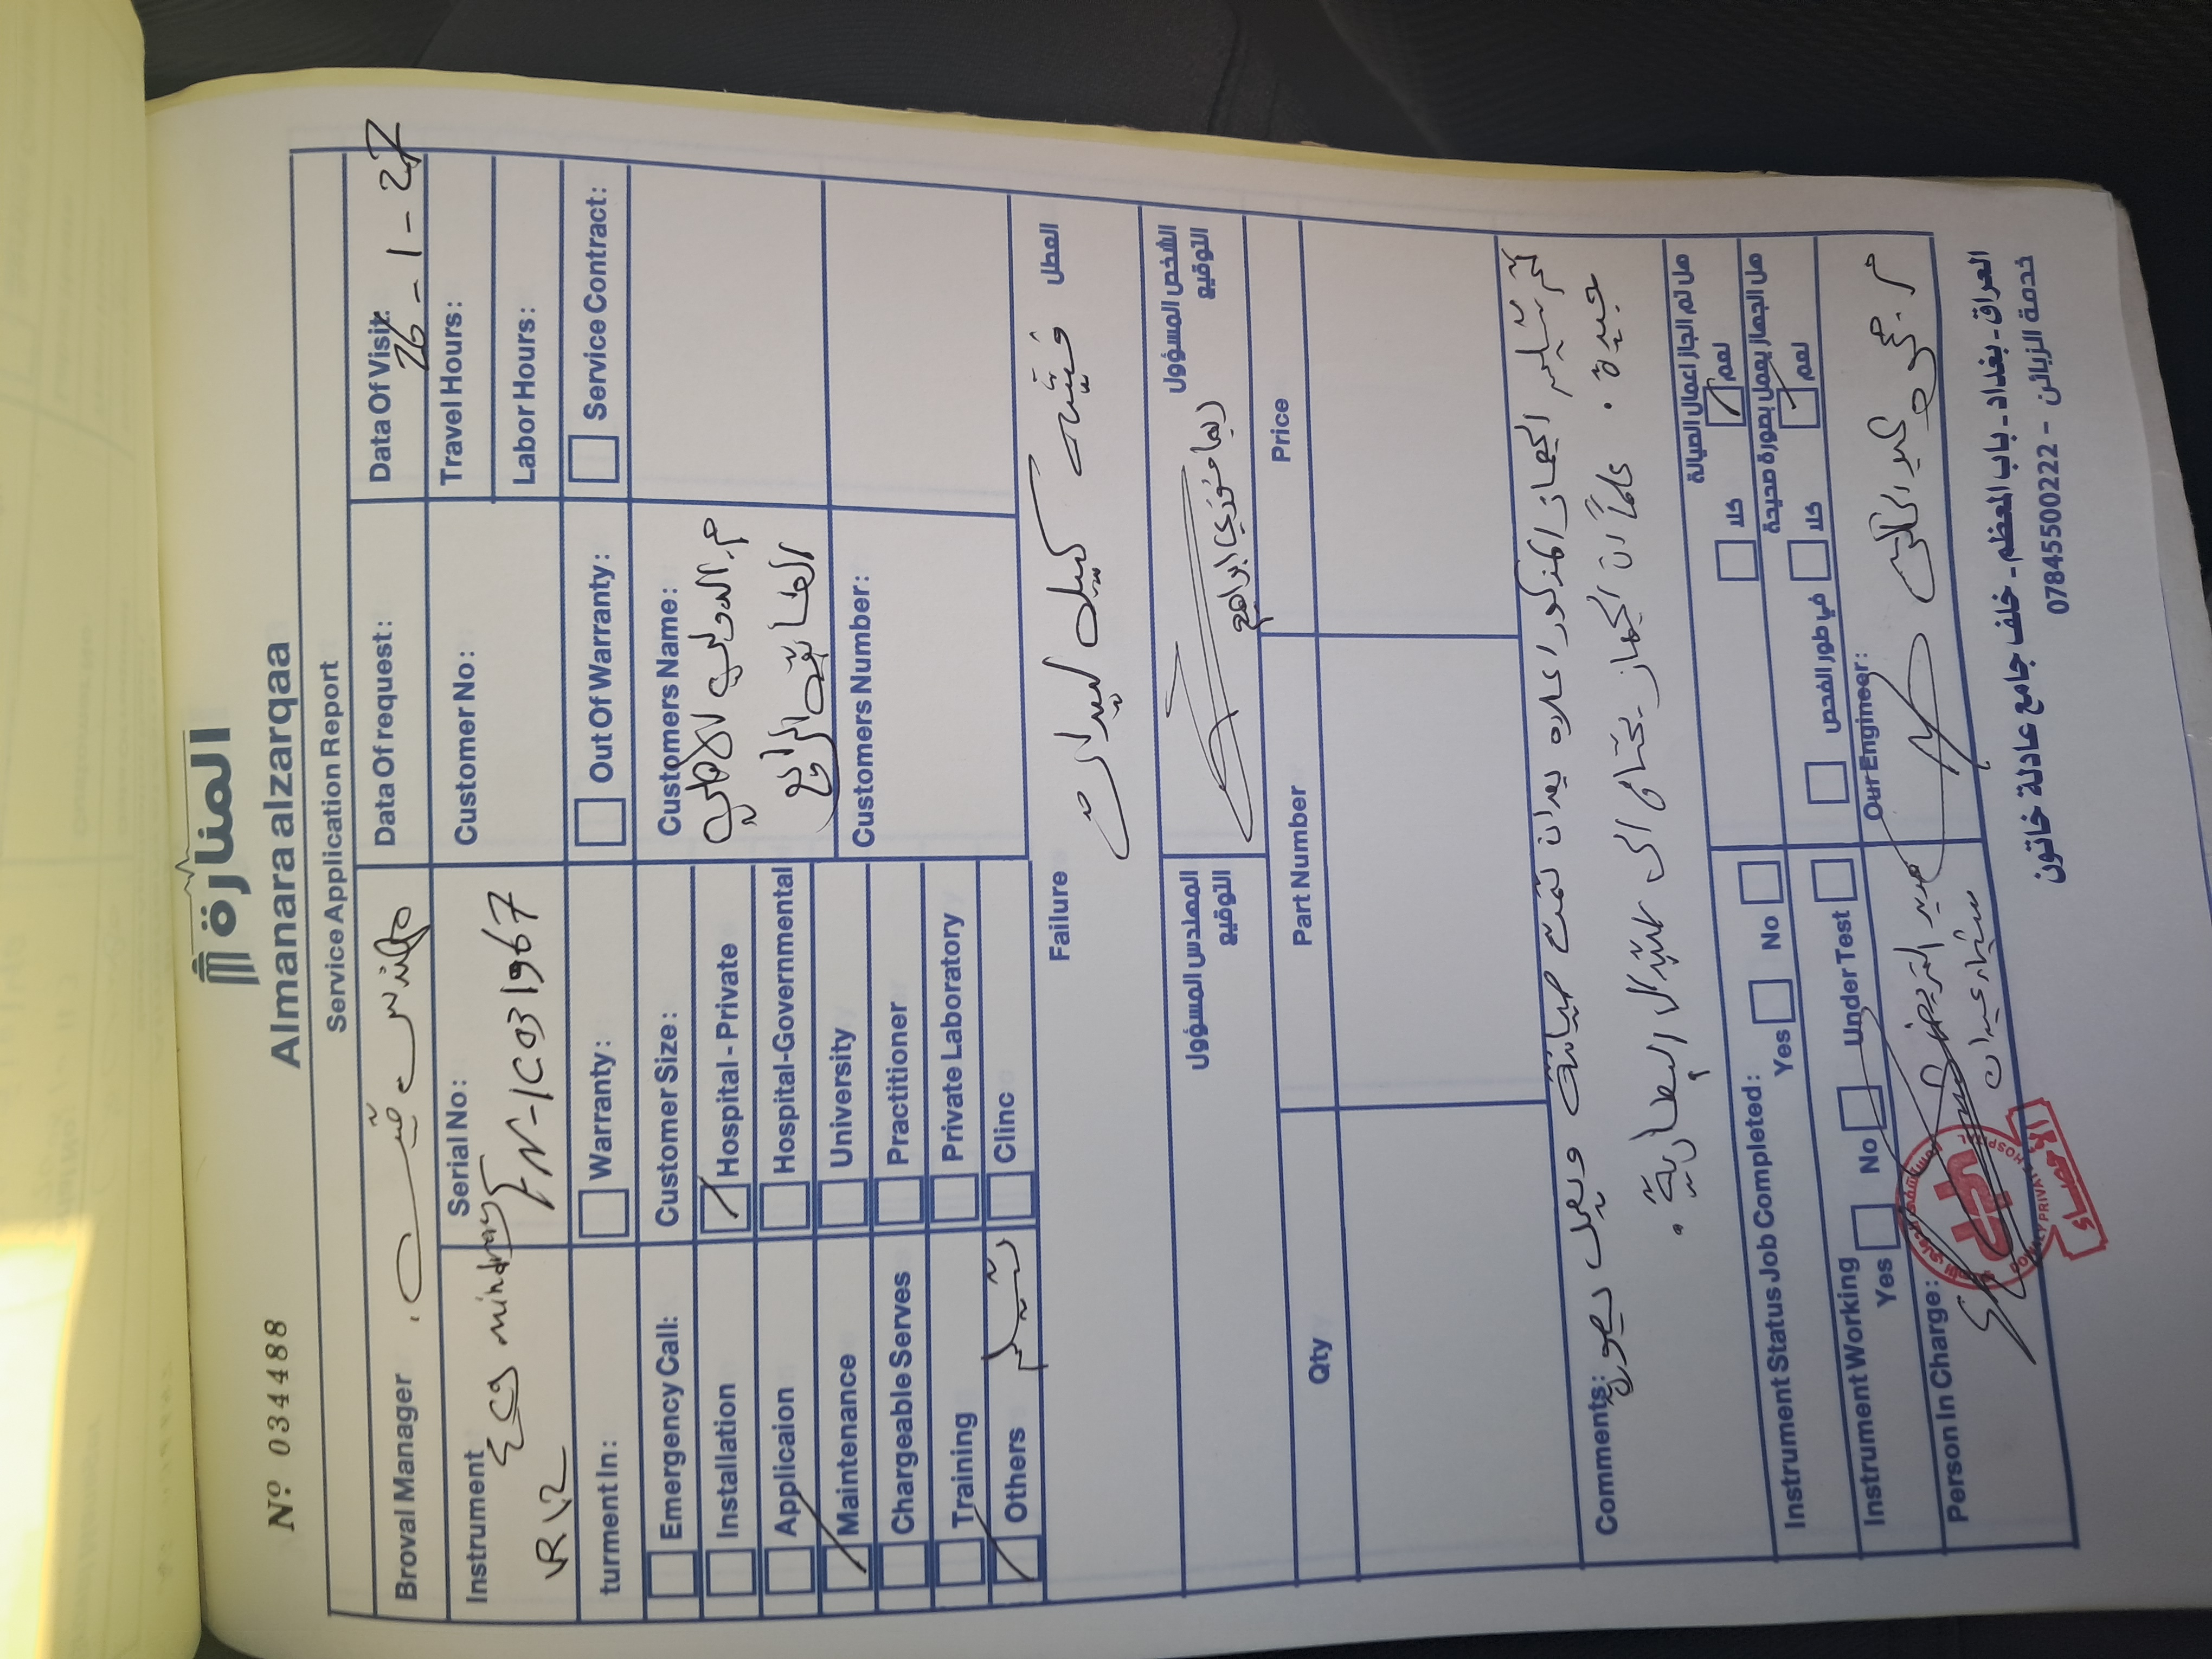 المنارة
Nº 034488
Almanara alzarqaa
Service Application Report
Broval Manager
مهندس
Data Of request:
Data Of Visit:
26 - 1 - 27
Instrument
ECG mindray
R12
Serial No:
FN-1C031967
Customer No:
Travel Hours:
Labor Hours:
turment In:
Warranty:
Out Of Warranty:
Service Contract:
Emergency Call:
Installation
Applicaion
Maintenance
Chargeable Serves
Training
Others
تسليم
Customer Size:
Hospital - Private
Hospital-Governmental
University
Practitioner
Private Laboratory
Clinc
Customers Name:
م. الدولي الاهلي
الطابق الرابع
Customers Number:
Failure
العطل
كيبل ليدات
المهندس المسؤول
التوقيع
الشخص المسؤول
التوقيع
ابراهيم
Qty
Part Number
Price
Comments:
تم تسليم الجهاز المذكور اعلاه بعد ان تمت صيانته ويعمل بصورة
جيدة. علماً ان الجهاز يحتاج الى استبدال البطارية.
Instrument Status Job Completed:
Yes
No
هل تم انجاز اعمال الصيانة
نعم
كلا
Instrument Working
Yes
No
Under Test
هل الجهاز يعمل بصورة صحيحة
نعم
كلا
في طور الفحص
Person In Charge:
مدير التمريض
Our Engineer:
الاحصاء
العراق - بغداد - باب المعظم - خلف جامع عادلة خاتون
خدمة الزبائن - 07845500222